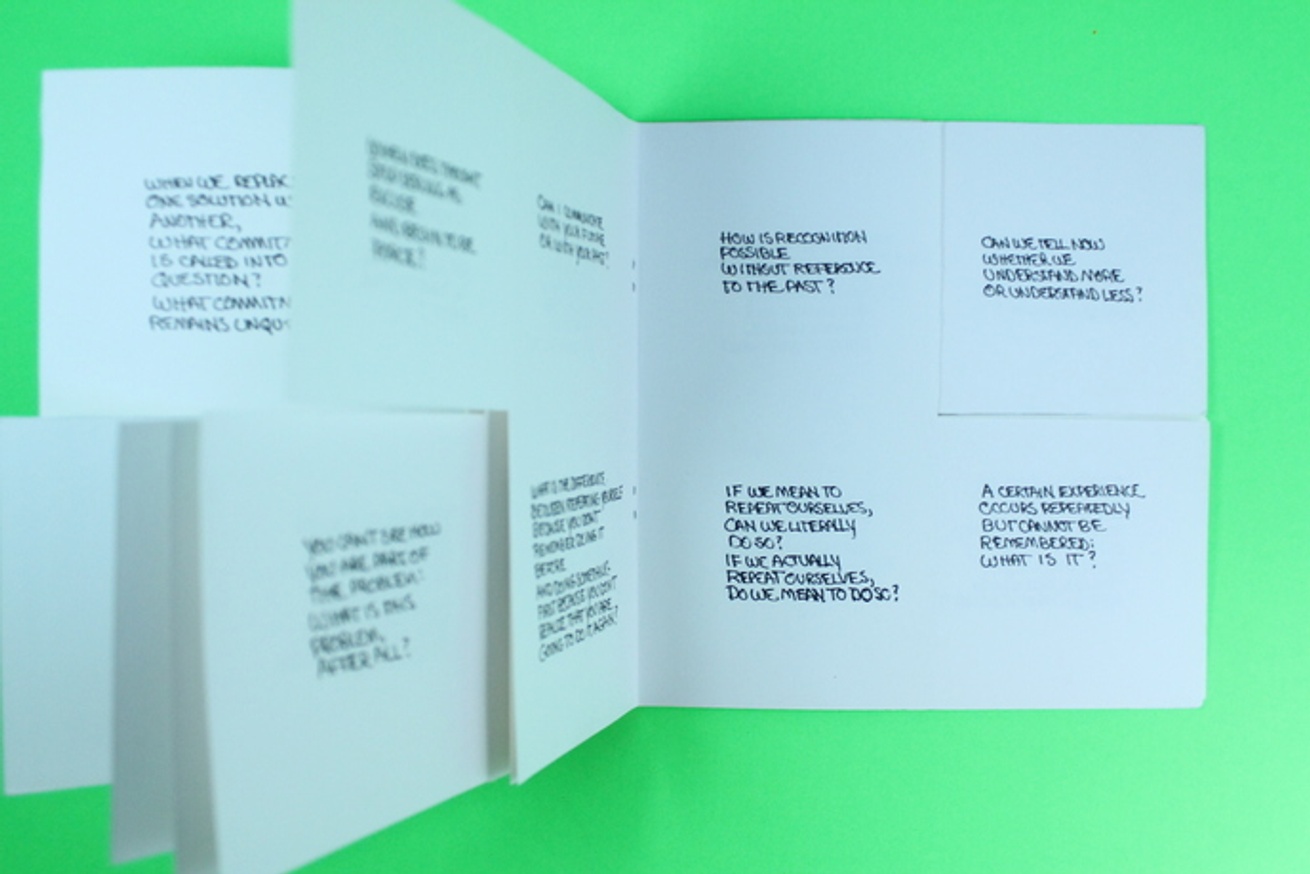 WHEN WE REPLAC
ONE SOLUTION W
ANOTHER,
WHAT COMMIT
IS CALLED INTO
QUESTION?
WHAT COMMITM
REMAINS UNQU
CAN I COMMUNE
WITH YOUR FUTURE
OR WITH YOUR PAST?
HOW IS RECOGNITION
POSSIBLE
WITHOUT REFERENCE
TO THE PAST?
CAN WE TELL NOW
WHETHER WE
UNDERSTAND MORE
OR UNDERSTAND LESS?
YOU CAN'T SEE HOW
YOU ARE PART OF
THE PROBLEM:
WHAT IS THIS
PROBLEM,
AFTER ALL?
WHAT IS THE DIFFERENCE
BETWEEN REPEATING YOURSELF
BECAUSE YOU DON'T
REMEMBER DOING IT
BEFORE
AND DOING SOMETHING
FIRST BECAUSE YOU DON'T
REALIZE THAT YOU ARE
GOING TO DO IT AGAIN?
IF WE MEAN TO
REPEAT OURSELVES,
CAN WE LITERALLY
DO SO?
IF WE ACTUALLY
REPEAT OURSELVES,
DO WE MEAN TO DO SO?
A CERTAIN EXPERIENCE
OCCURS REPEATEDLY
BUT CANNOT BE
REMEMBERED;
WHAT IS IT?